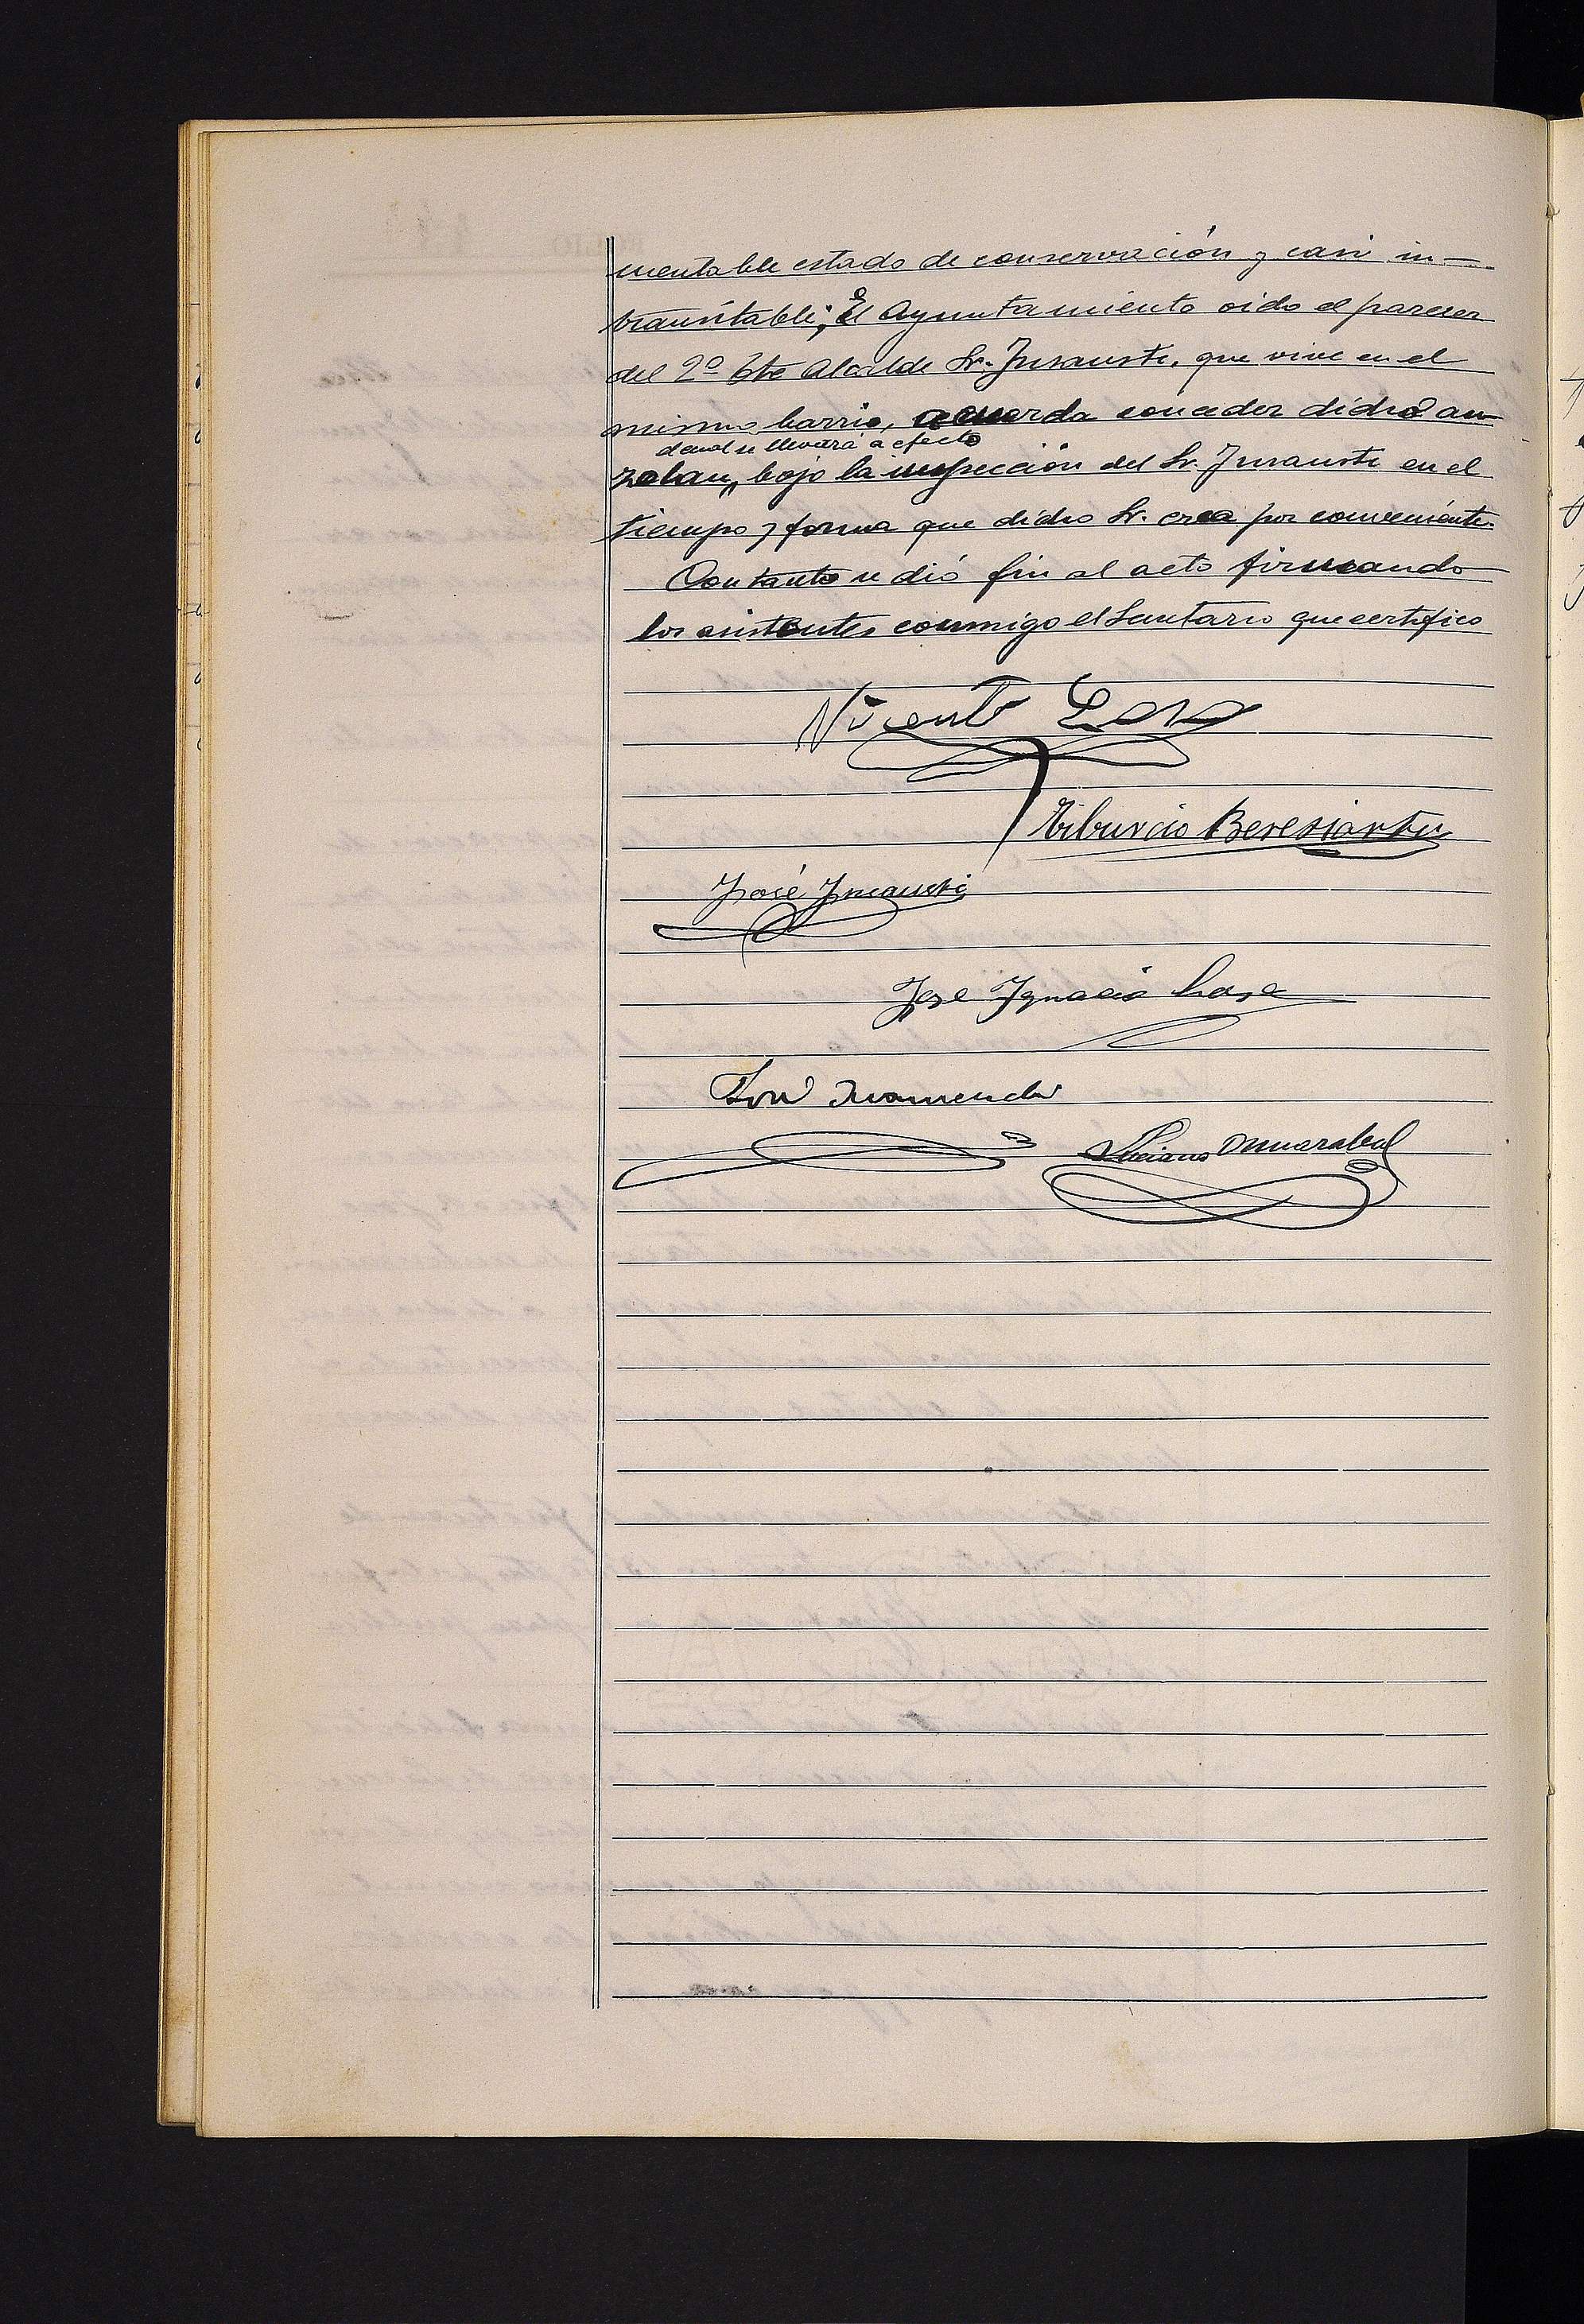 mentable estado de conservación y casi in-
transitable; El Ayuntamiento oido el parecer
del 2º Tte Alcalde Sr. Inxausti, que vive en el
mismo barrio, acuerda conceder dicho au-
el cual se llevará a efecto
zolan, bajo la inspección del Sr. Inxausti en el
tiempo y forma que dicho Sr. crea por conveniente.
Con tanto se dió fin al acto firmando
los asistentes conmigo el Secretario que certifico
Vicente Lasa
Tiburcio Beresiartu
José Inxausti
José Ignacio Lasa
José
Luciano